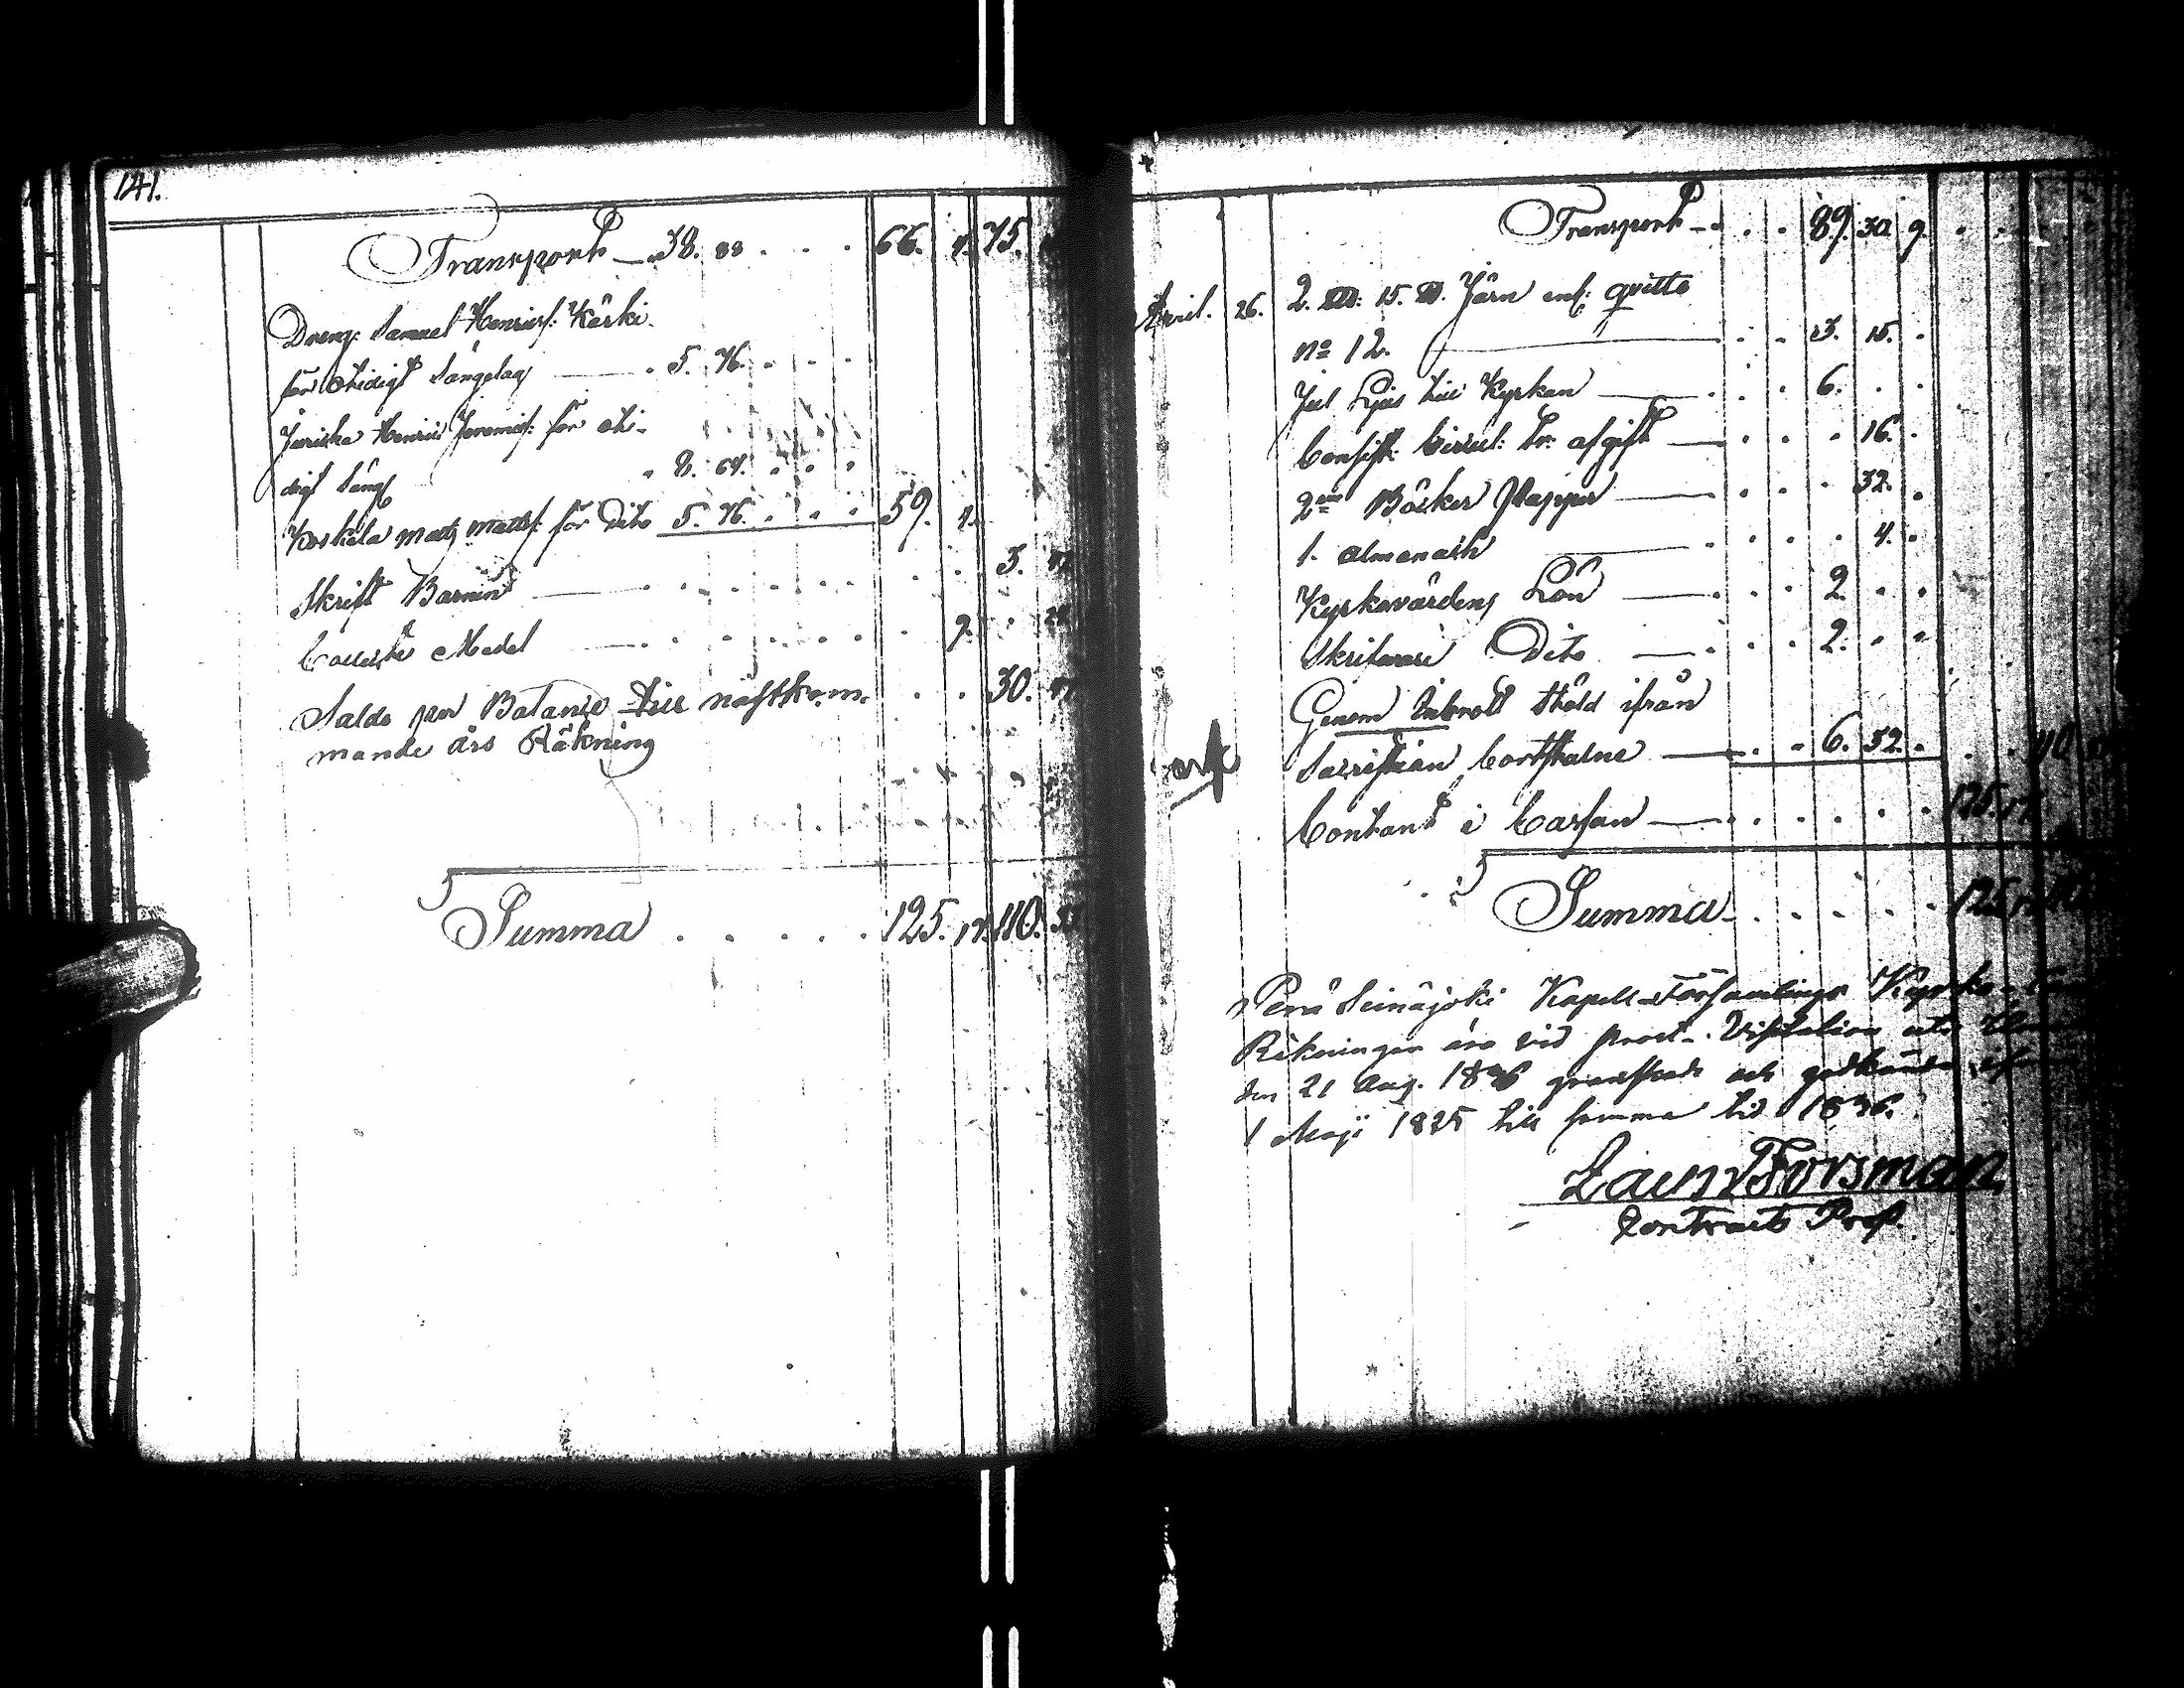 141.
Transport — 38. 88 . . . . 66. 4. 75.
Dreng. Samuel Henrics: Käski.
för otidigt Sängelag — . 5. 76. . . .
Henric Jeremis: för oti-
digt Säng . 8. 64. . . .
Koskela Matts Matts: för Dito 5. 76. . . . 59. 4.
Skrift Barnen — . . . . . . . . . 3.
Collecte Medel — . . . . . . . 9. .
Saldo per Balance till nästkom-
mande års Räkning . . 30.
Summa . . . . . 125. 17. 110.
Transport — . . . 89. 30. 9. . .
April. 26. 2. 15. Järn enl: qvitto
No 12. — . . 3. 15. .
Jul Ljus till Kyrkan — . . . 6. . .
Consist: Circul: Lr: afgift — . . . 16. .
Böcker Papper — . . . 32. .
1. Almanach — . . . . 4. .
Kyrkovärdens Lön — . . . 2. . .
Skrifvare Dito — . . . 2. . .
Genom Inbrott stöld ifrån
Sacristian bortstulne — . . 6. 32. . . . 110
Contant i Cassan — . . . . . . 125. 17
Summa . . . . . . 125. 17
Perä Seinäjoki Kapell-Församlings Kyrko-
Räkningar äro vid Prost-Visitation uti
den 21 Aug. 1836 granskade och godkända ifrån
1 Maji 1825 till samma tid 1836.
Forsman
Contracts Prost